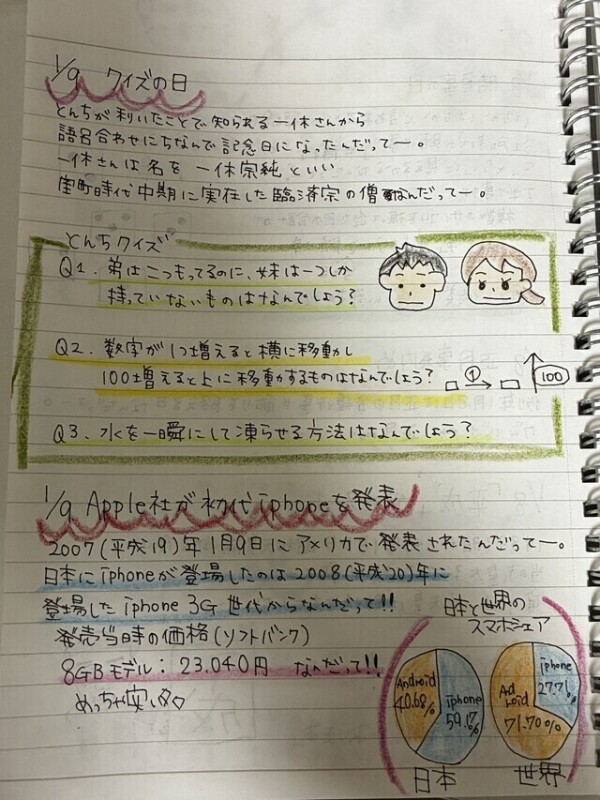 1/9 クイズの日
とんちが利いたことで知られる一休さんから
語呂合わせにちなんで記念日になったんだってー。
一休さんは名を一休宗純といい
室町時代中期に実在した臨済宗の僧なんだってー。
とんちクイズ
Q1. 弟は二つもってるのに、妹は一つしか
持っていないものはなんでしょう？
Q2. 数字が1つ増えると横に移動し
100増えると上に移動するものはなんでしょう？
① 100
Q3. 水を一瞬にして凍らせる方法はなんでしょう？
1/9 Apple社が初代iphoneを発表
2007(平成19)年1月9日にアメリカで発表されたんだってー。
日本にiphoneが登場したのは2008(平成20)年に
登場したiphone 3G世代からなんだって!!
発売当時の価格(ソフトバンク)
8GBモデル：23.040円 なんだって!!
めっちゃ安い
日本と世界の
スマホシェア
Android
40.68%
iphone
59.1%
日本
iphone
27.71%
Ad
roid
71.70%
世界